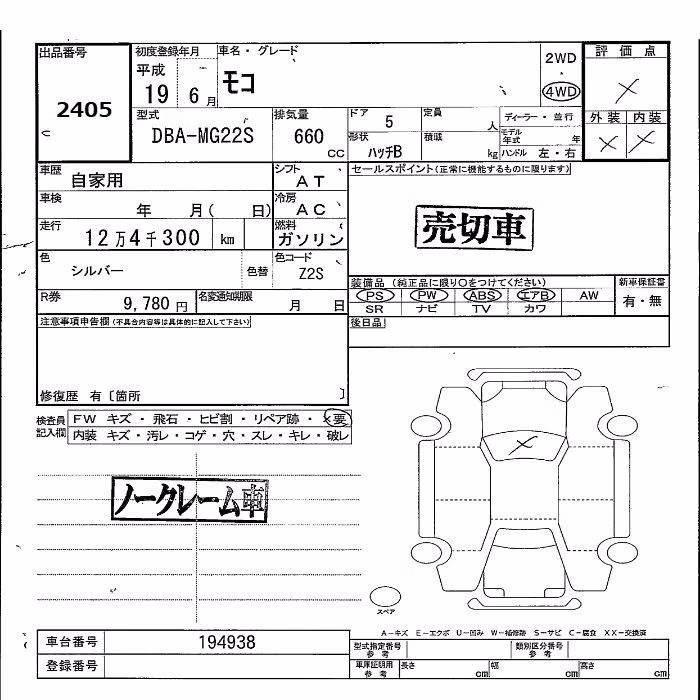 出品番号
2405
初度登録年月
平成
19 6 月
車名・グレード
モコ
2WD
・
4WD
評価点
外装 内装
型式
DBA-MG22S
排気量
660
cc
ドア
5
定員
人
形状
ハッチB
積載
kg
ディーラー・並行
モデル年式 年
ハンドル 左・右
車歴
自家用
シフト
AT
車検
年 月( 日)
冷房
AC
走行
12万4千300 km
燃料
ガソリン
色
シルバー
色替
色コード
Z2S
R券
9,780 円
名変通知期限
月 日
セールスポイント(正常に機能するものに限ります)
売切車
装備品 (純正品に限り○をつけてください)
PS PW ABS エアB AW
SR ナビ TV カワ
新車保証書
有・無
後日品
注意事項申告欄(不具合内容等は具体的に記入して下さい)
修復歴 有〔箇所 〕
検査員記入欄
FW キズ・飛石・ヒビ割・リペア跡・×要
内装 キズ・汚レ・コゲ・穴・スレ・キレ・破レ
ノークレーム車
スペア
A-キズ E-エクボ U-凹み W-補修跡 S-サビ C-腐食 XX-交換済
車台番号 194938
登録番号
型式指定番号参考
類別区分番号参考
車庫証明用参考
長さ cm 幅 cm 高さ cm